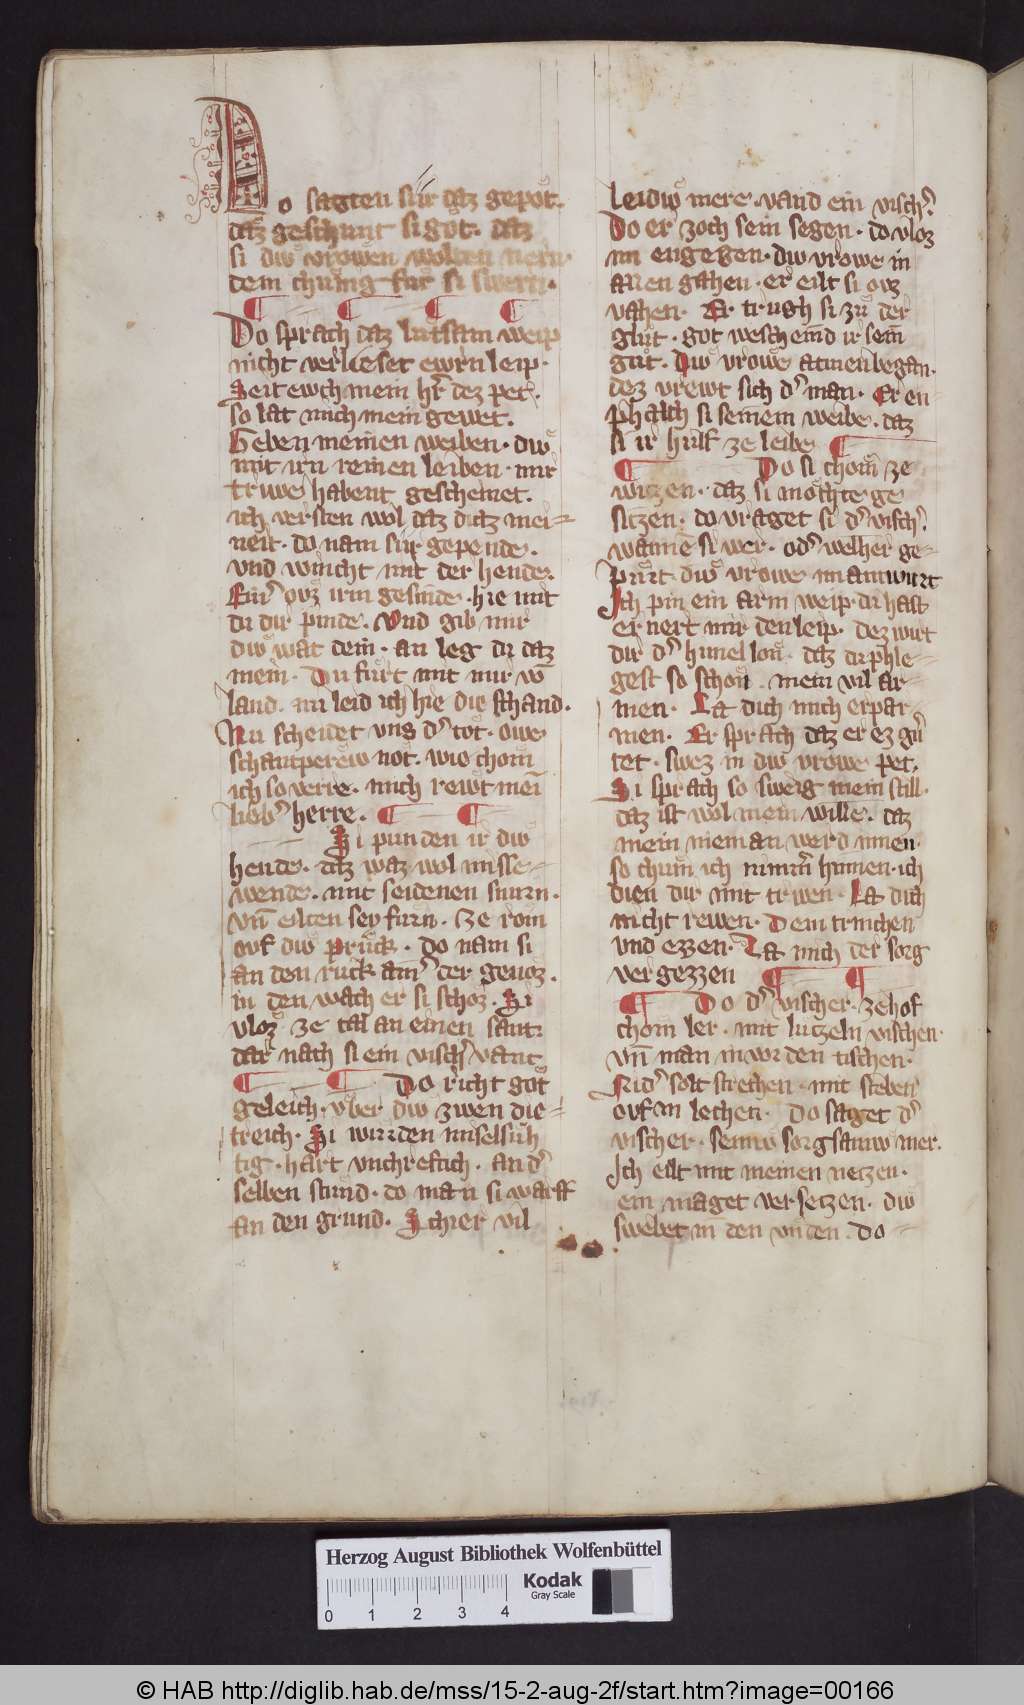 Do sagten siir daz gepot.
daz geschunt si got. daz
si diw vrowen wolten nern
dem chunig fur si swern.
Do sprach daz lutsam weip
nicht verlieset ewrn leip.
Seit ewch mein hr dez pet.
so lat mich mein gewet.
Geben meinen weiben. diw
mit irn reinen leiben. mir
triwe habent gescheinet.
ich versten wol daz ditz mei=
neit. do nam siir gepende.
vnd wincht mit der hende.
Fur ovz irm gesinde. hie mit
du dir pinde. Vnd gib mir
diw wat dein. an leg du daz
mein. Du furt mit mir vo
land. nu leid ich hie die schand.
Nu scheidet vns d' tot. owe
schantperew not. wio chom
ich so verre. mich rewt mei
lieb' herre.
Si punden ir diw
hende. daz waz wol misse=
wende. mit seidenen snurn.
vn eilten sey furn. Ze rom
ovf diw pruck. do nam si
an den ruck ain' der genoz.
in den wach er si schoz. Si
vloz ze tal an einen sant.
dar nach si ein visch' vant.
Do richt got
geleich. vber diw zwen die=
treich. Si wurden miselsuh
tig. hart vnchreftich. an d'
selben stund. do man si warff
an den grund. Schier vil
leidiw mere. vand ein visch'.
Do er zoch sein segen. do vloz
im engegen. diw vrowe in
allen gahen. er eilt si ovz
vahen. Er trugh si zu der
glut. got weschermd ir sein
gut. Diw vrowe atmen began.
dez vrewt sich d' man. Er en=
phalch si seinem weibe. daz
si ir hulf ze leibe
Do si chom ze
witzen. daz si mochte ge
sitzen. do vraget si d' visch'.
wanne si wer. od' welher ge=
purt diw vrowe im antwurt
Ich pin ein arm weip. du hast
er nert mir den leip. dez wirt
dir d' himel lon. daz du phle=
gest so schon. mein vil ar=
men. La dich mich erpar=
men. Er sprach daz er ez gu
tet. swez in diw vrowe pet.
Si sprach so sweig mein still.
daz ist wol mein wille. daz
mein nieman werd innen.
so chum ich nimm'r hinnen. ich
dien dir mit triwen. La dich
nicht rewen. Dein trinchen
vnd ezzen. La mich der sorg
vergezzen
Do d' vischer. ze hof
chom ler. mit lutzeln vischen.
vn man inwr den tischen.
Nid' solt strechen. mit steben
ovf in lechen. do saget d'
vischer. seiniw sorgsamiw mer.
Ich eilt mit meinen netzen.
ein maget versetzen. diw
swebet in den vnden. do=
Herzog August Bibliothek Wolfenbüttel
0 1 2 3 4
Kodak
Gray Scale
© HAB http://diglib.hab.de/mss/15-2-aug-2f/start.htm?image=00166